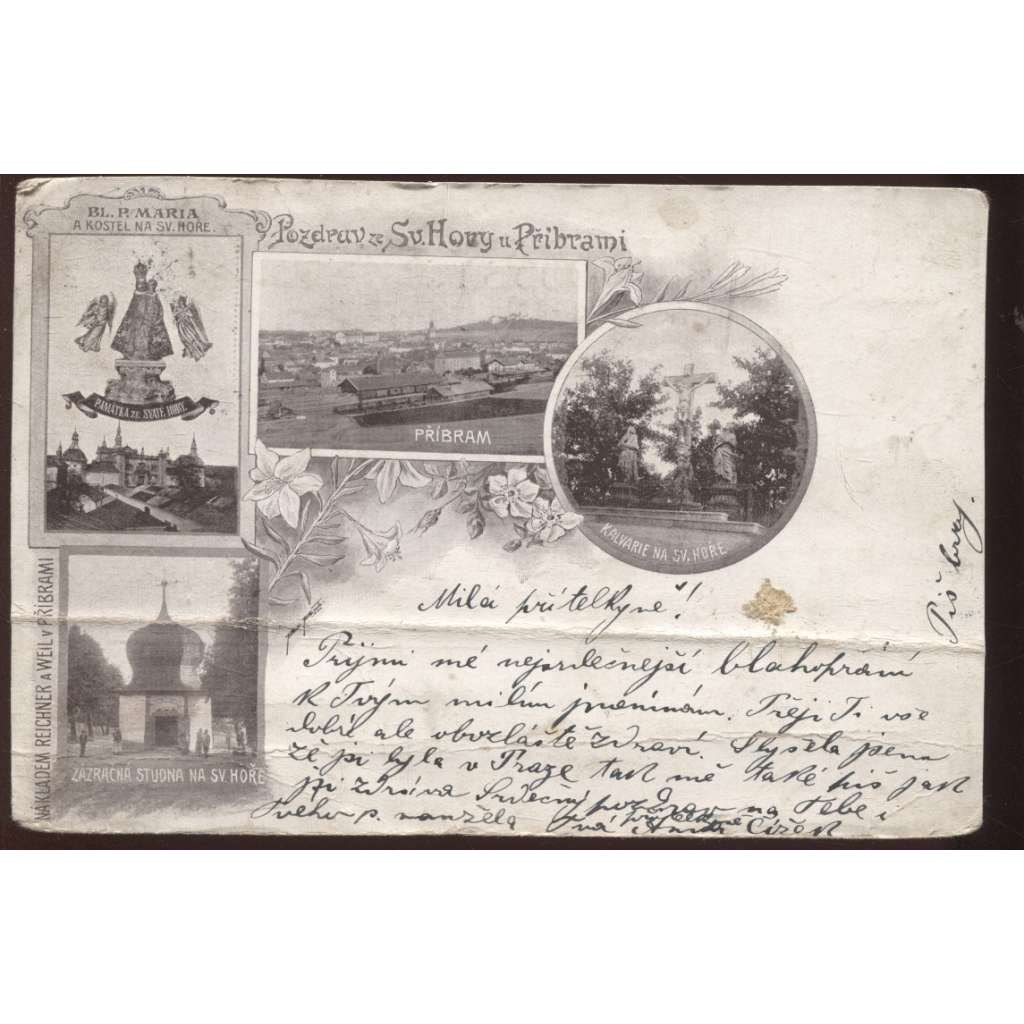 BL. P. MARIA
A KOSTEL NA SV. HOŘE.
Pozdrav ze Sv. Hory u Příbrami
PAMÁTKA ZE SVATÉ HORY.
PŘÍBRAM
KALVARIE NA SV. HOŘE
ZÁZRAČNÁ STUDNA NA SV. HOŘE
NÁKLADEM REICHNER A WEIL V PŘÍBRAMI
Milá přítelkyně!
Přijmi mé nejsrdečnější blahopřání
k Tvým milým jmeninám. Přeji Ti vše
dobré ale obozláště zdraví. Slyšela jsem
že jsi byla v Praze tak mě také piš jak
jsi zdráva Srdečný pozdrav na Tebe i
Tvého p. manžela Tvá přítelkyně Čížek
Piš brzy.